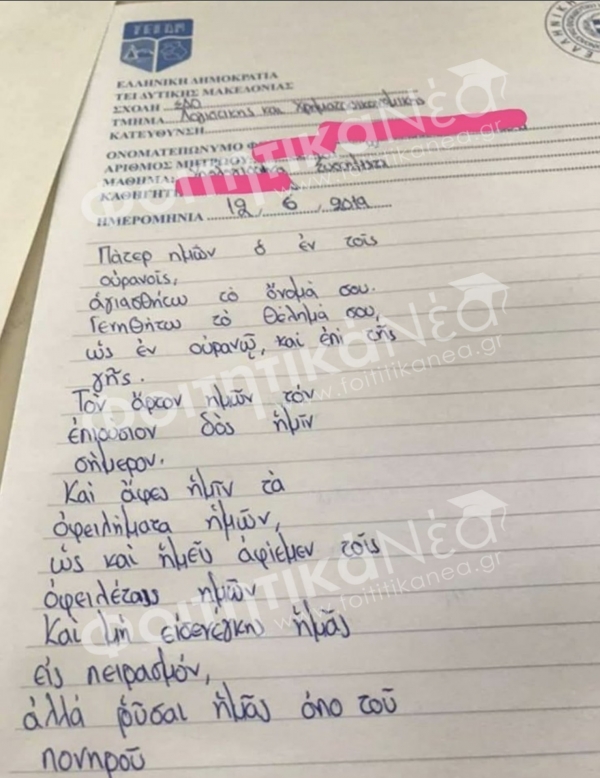 ΤΕΙΔΜ
ΕΛΛΗΝΙΚΗ ΔΗΜΟΚΡΑΤΙΑ
ΤΕΙ ΔΥΤΙΚΗΣ ΜΑΚΕΔΟΝΙΑΣ
ΣΧΟΛΗ ΣΔΟ
ΤΜΗΜΑ Λογιστικης και Χρηματοοικονομικής
ΚΑΤΕΥΘΥΝΣΗ
ΟΝΟΜΑΤΕΠΩΝΥΜΟ
ΑΡΙΘΜΟΣ ΜΗΤΡΩΟΥ
ΜΑΘΗΜΑ
ΚΑΘΗΓΗΤ
ΗΜΕΡΟΜΗΝΙΑ 12 / 6 / 2019
Πάτερ ημών ὁ ἐν τοῖς
οὐρανοῖς,
ἁγιασθήτω τὸ ὄνομά σου.
Γενηθήτω τὸ θέλημά σου,
ὡς ἐν οὐρανῷ, καὶ ἐπὶ τῆς
γῆς.
Τὸν ἄρτον ἡμῶν τὸν
ἐπιούσιον δὸς ἡμῖν
σήμερον.
Καὶ ἄφες ἡμῖν τὰ
ὀφειλήματα ἡμῶν,
ὡς καὶ ἡμεῖς ἀφίεμεν τοῖς
ὀφειλέταις ημῶν
Καὶ μὴ εἰσενέγκης ἡμᾶς
εἰς πειρασμόν,
ἀλλά ῥῦσαι ἡμᾶς ἀπο τοῦ
πονηροῦ
ΦοιτητικάΝέα
www.foititikanea.gr